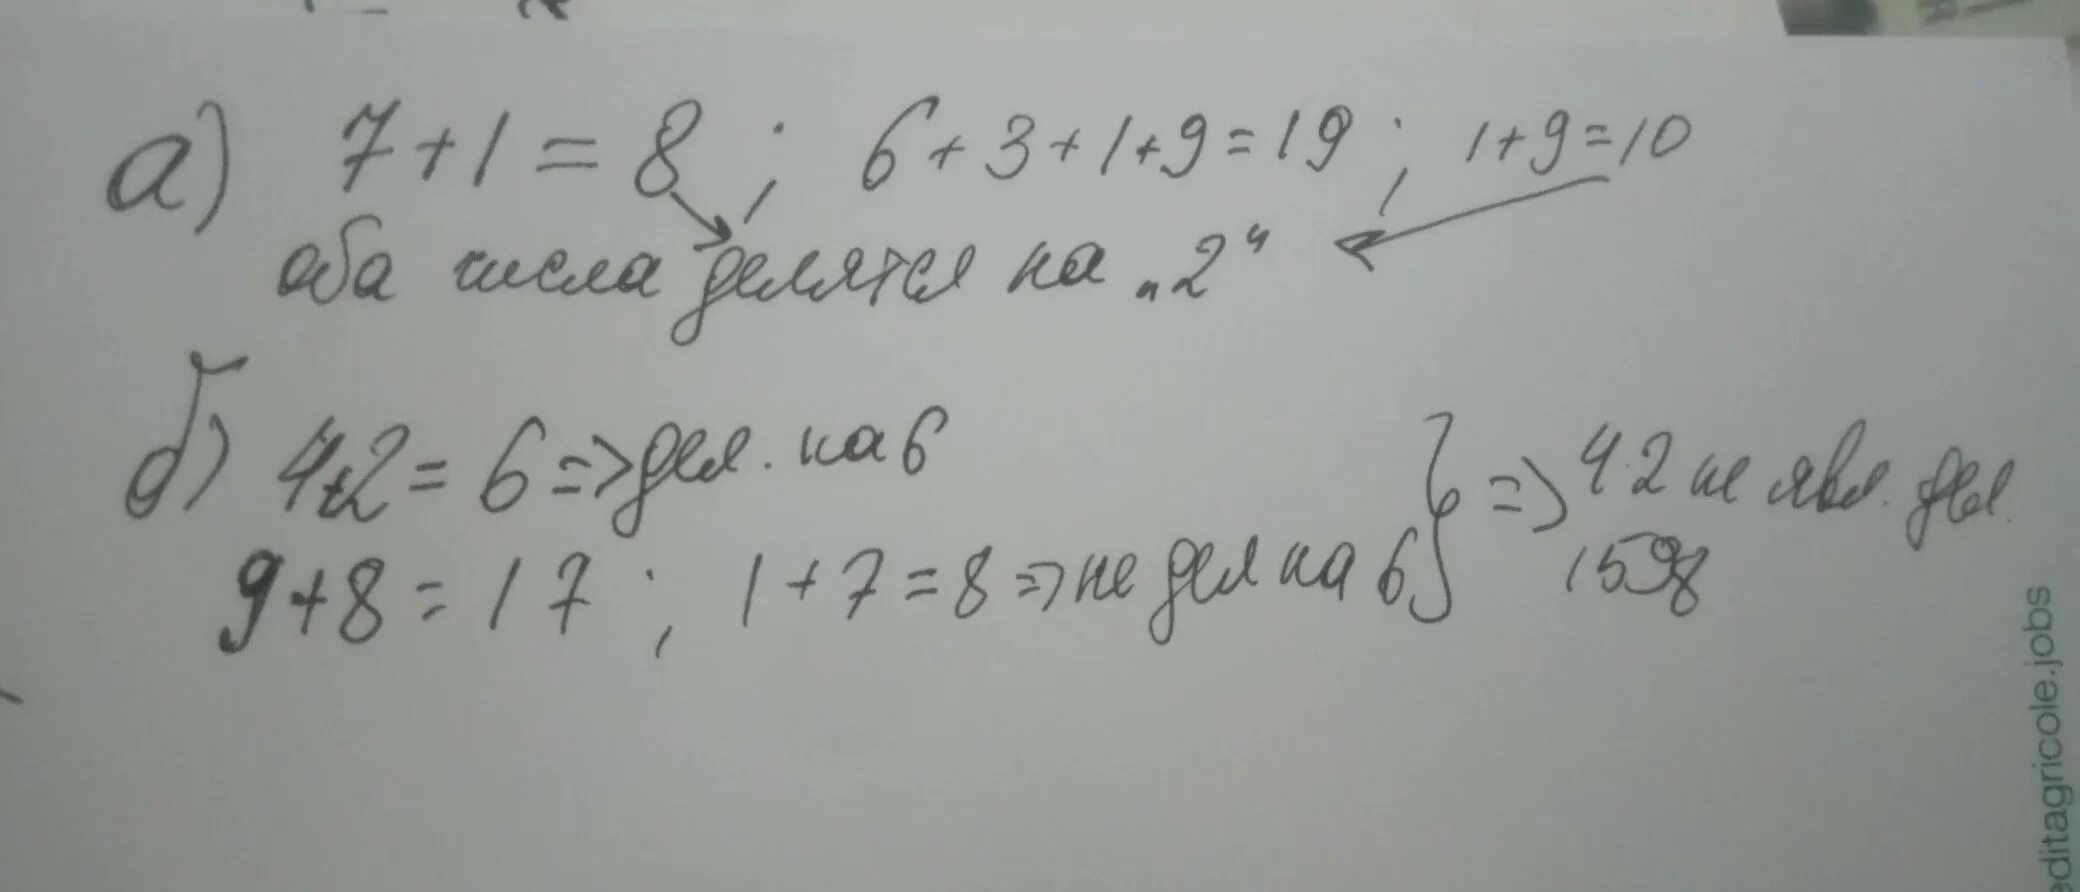 а) 7+1=8; 6+3+1+9=19; 1+9=10
оба числа делятся на „2“
б) 4+2=6=>дел. на 6
9+8=17; 1+7=8=>не дел на 6 } => 42 не явл. дел.
1598
editagricole.jobs